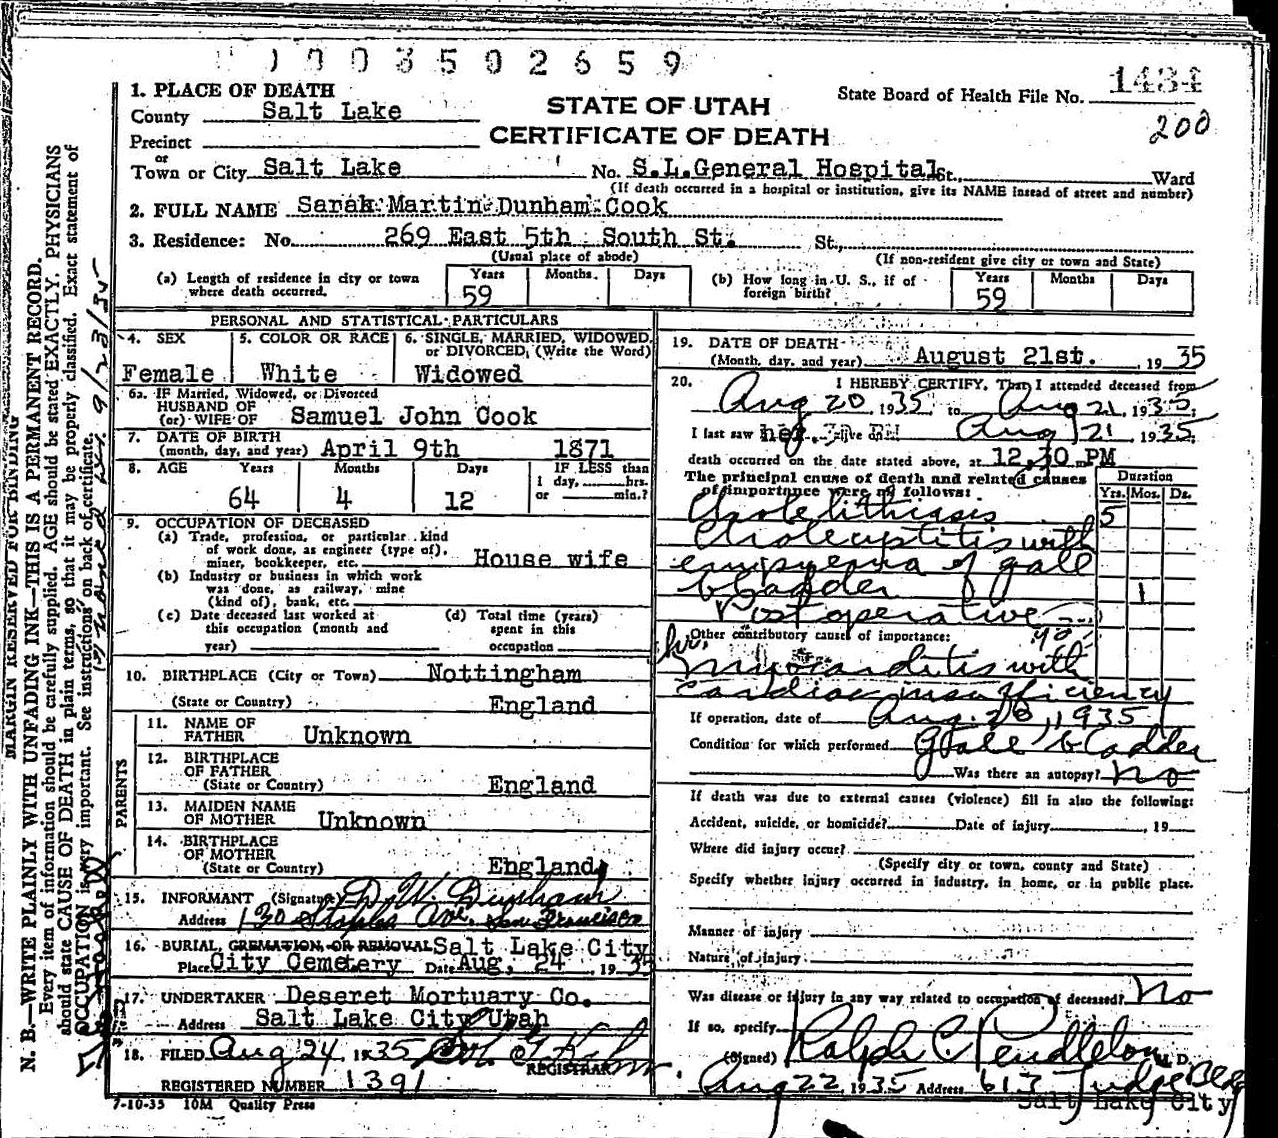 1003502659
1. PLACE OF DEATH
County Salt Lake
STATE OF UTAH
CERTIFICATE OF DEATH
State Board of Health File No. 1434
200
Precinct
or
Town or City Salt Lake No. S.L.General Hospital St., Ward
(If death occurred in a hospital or institution, give its NAME instead of street and number)
2. FULL NAME Sarah Martin Dunham Cook
3. Residence: No. 269 East 5th South St. St.,
(Usual place of abode) (If non-resident give city or town and State)
(a) Length of residence in city or town where death occurred. Years 59 Months. Days
(b) How long in U. S., if of foreign birth? Years 59 Months Days
PERSONAL AND STATISTICAL PARTICULARS
4. SEX Female
5. COLOR OR RACE White
6. SINGLE, MARRIED, WIDOWED, or DIVORCED, (Write the Word) Widowed
6a. IF Married, Widowed, or Divorced
HUSBAND OF
(or) WIFE OF Samuel John Cook
7. DATE OF BIRTH
(month, day, and year) April 9th 1871
8. AGE Years 64 Months 4 Days 12 IF LESS than 1 day, hrs. or min.?
9. OCCUPATION OF DECEASED
(a) Trade, profession, or particular kind
of work done, as engineer (type of),
miner, bookkeeper, etc. House wife
(b) Industry or business in which work
was done, as railway, mine
(kind of), bank, etc.
(c) Date deceased last worked at
this occupation (month and
year)
(d) Total time (years)
spent in this
occupation
10. BIRTHPLACE (City or Town) Nottingham
(State or Country) England
PARENTS
11. NAME OF
FATHER Unknown
12. BIRTHPLACE
OF FATHER
(State or Country) England
13. MAIDEN NAME
OF MOTHER Unknown
14. BIRTHPLACE
OF MOTHER
(State or Country) England
15. INFORMANT (Signature) D. W. Dunham
Address 130 Staples Ave. San Francisco
16. BURIAL, CREMATION, OR REMOVAL Salt Lake City
Place City Cemetery Date Aug, 24, 1935
17. UNDERTAKER Deseret Mortuary Co.
Address Salt Lake City Utah
18. FILED Aug 24, 1935
REGISTRAR
REGISTERED NUMBER 1391
7-10-35 10M Quality Press
19. DATE OF DEATH
(Month, day, and year) August 21st. 1935
20. I HEREBY CERTIFY, That I attended deceased from
Aug 20 1935 to Aug 21, 1935,
I last saw her alive on Aug 21 1935,
death occurred on the date stated above, at 12,30 m PM
The principal cause of death and related causes
of importance were as follows:
Duration
Yrs. Mos. Ds.
Cholelithiasis 5
Cholecystitis with
empyema of gall
bladder 1
Postoperative
Other contributory causes of importance:
hr.
Myocarditis with
cardiac insufficiency
If operation, date of Aug. 20, 1935
Condition for which performed Gall bladder
Was there an autopsy? no
If death was due to external causes (violence) fill in also the following:
Accident, suicide, or homicide? Date of injury , 19
Where did injury occur?
(Specify city or town, county and State)
Specify whether injury occurred in industry, in home, or in public place.
Manner of injury
Nature of injury
Was disease or injury in any way related to occupation of deceased? No
If so, specify
(Signed) Ralph C. Pendleton M. D.
Aug 22, 1935 Address 613 Judge Bldg
Salt Lake City
MARGIN RESERVED FOR BINDING
N. B.—WRITE PLAINLY WITH UNFADING INK—THIS IS A PERMANENT RECORD.
Every item of information should be carefully supplied. AGE should be stated EXACTLY. PHYSICIANS
should state CAUSE OF DEATH in plain terms, so that it may be properly classified. Exact statement of
OCCUPATION is very important. See instructions on back of certificate.
9/23/35